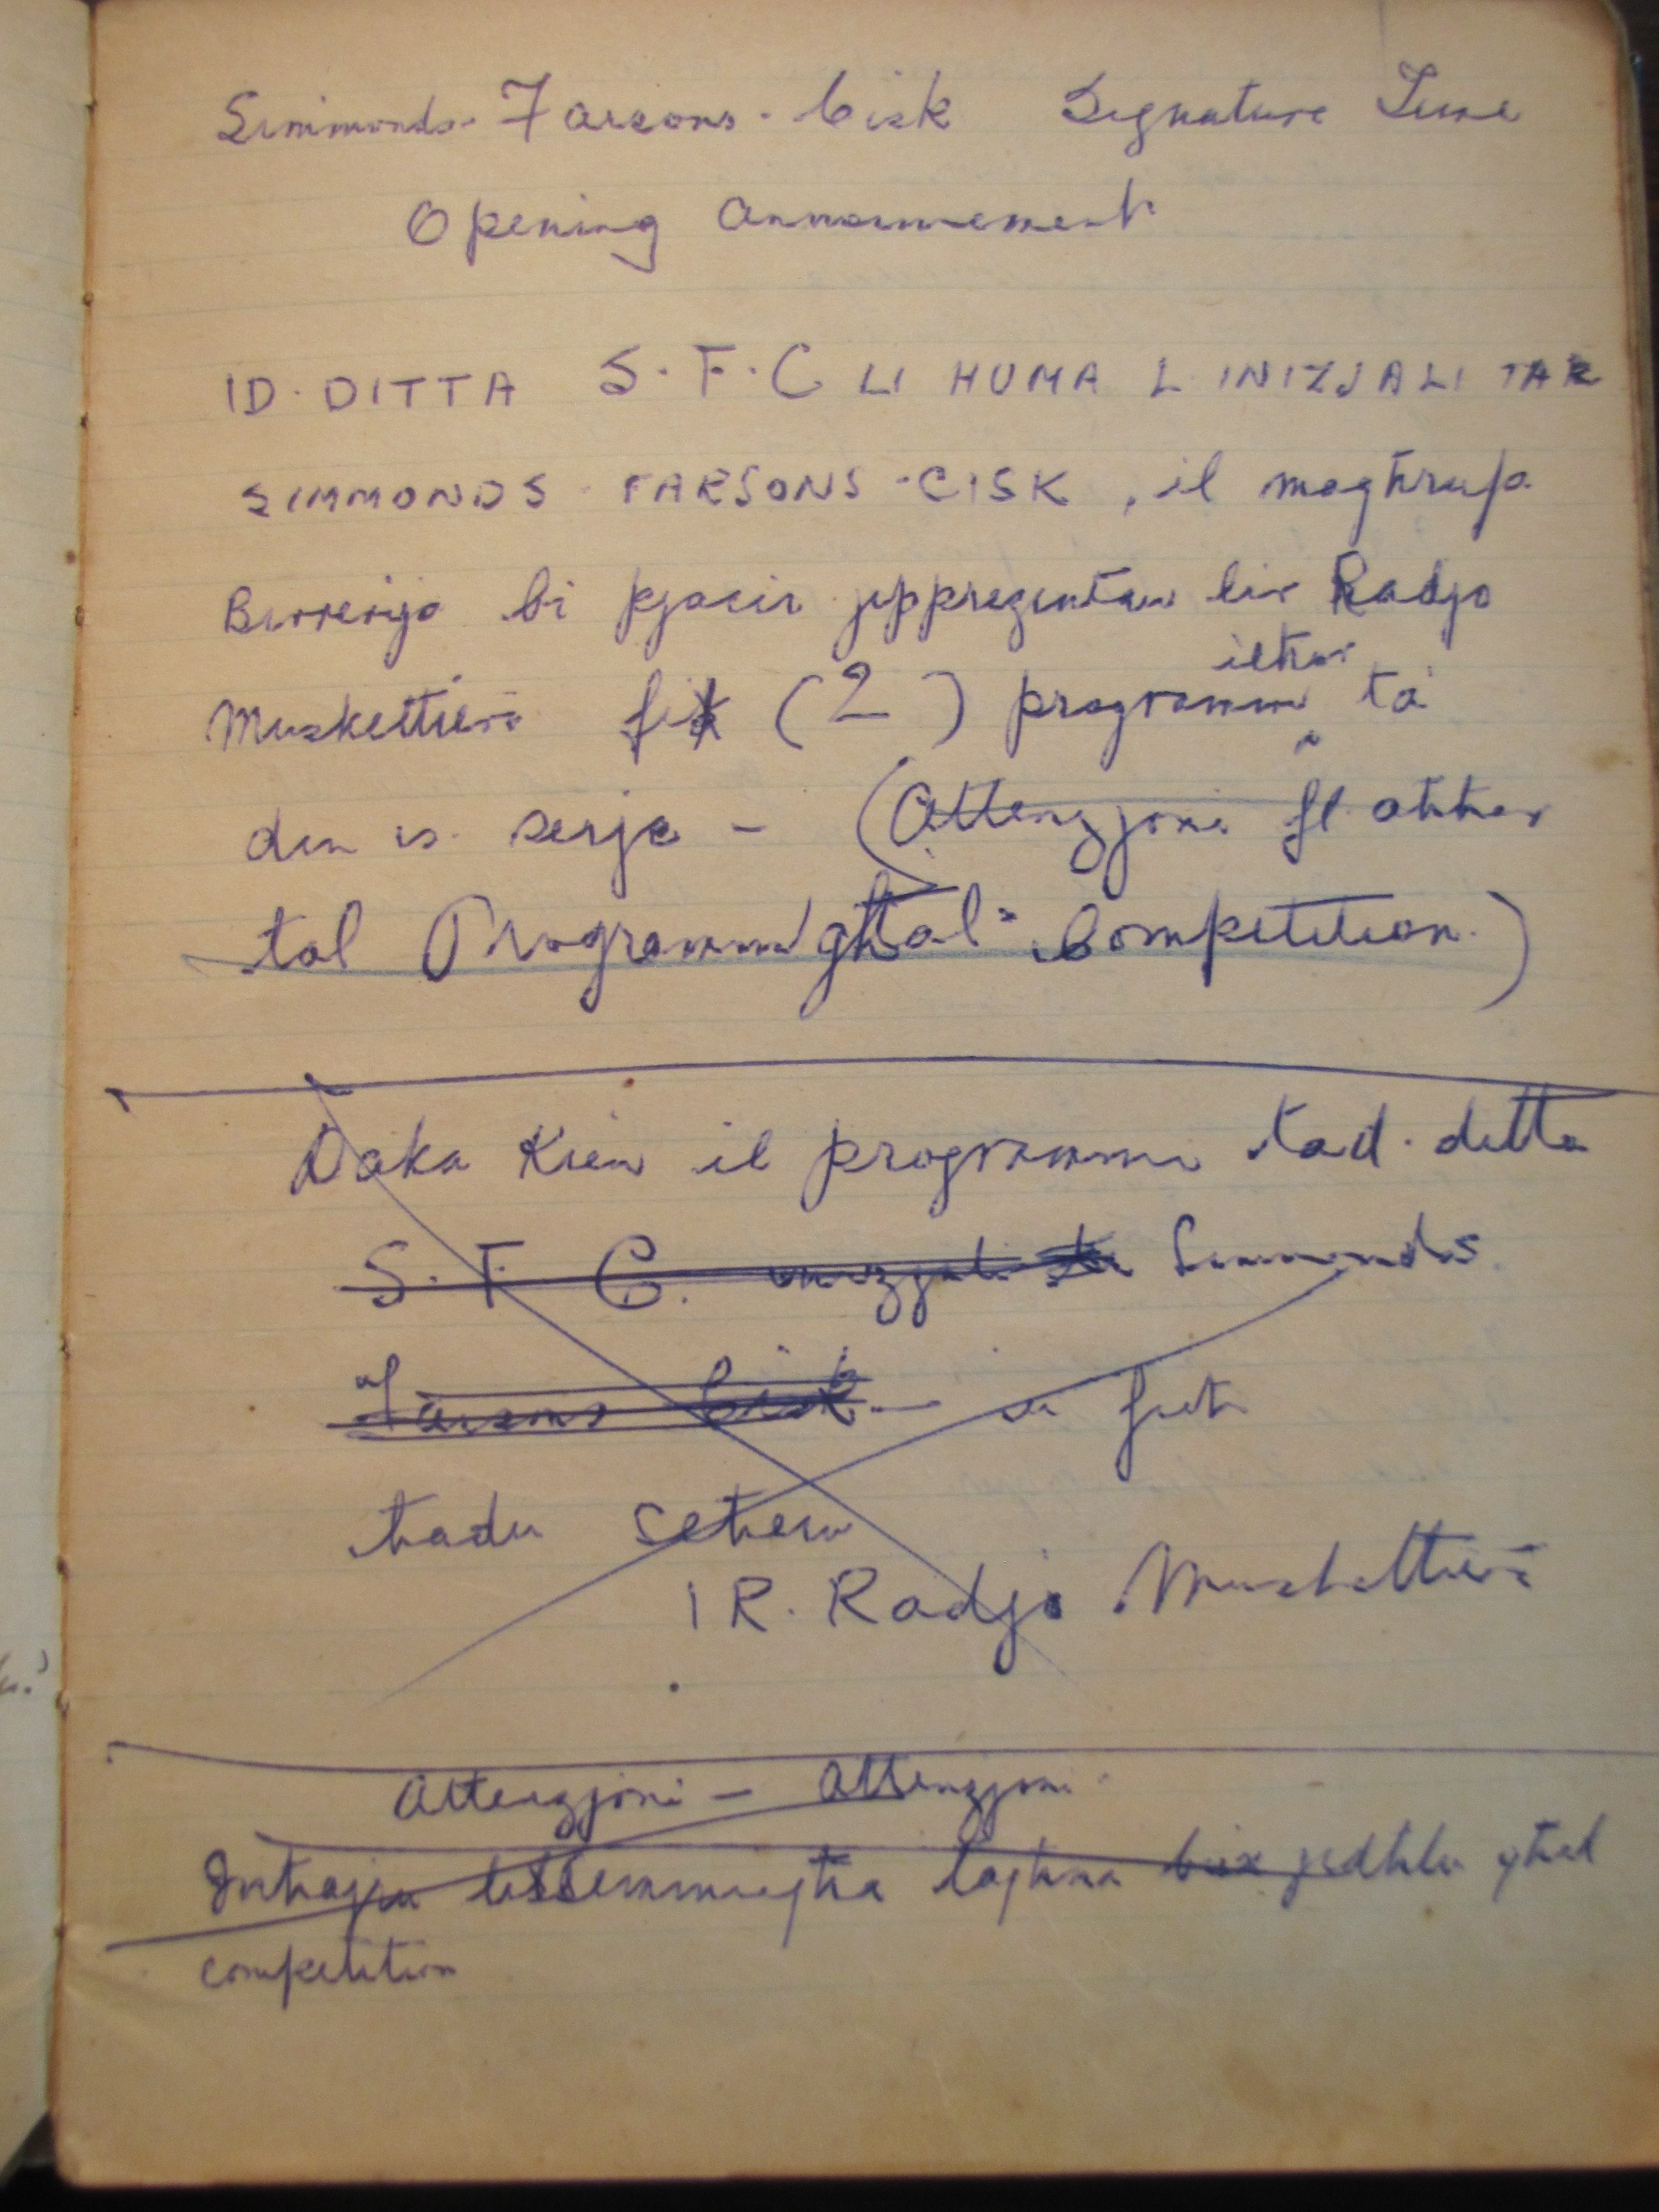 Simmonds. Farsons. Cisk Signature Tune
Opening Announcement
ID. DITTA S. F. C LI HUMA L INIZJALI TAR
SIMMONDS FARSONS CISK, il maghrufa
Birrerija bi pjacir jippresentaw lir Radjo
iehor
Muskettieri fil (2) programm ta
din is. serje - (Attenzjoni fl ahhar
tal Programm ghal Competition.)
Daka Kien il programm tad. ditta
S. F. C. inizjali ta Simmonds
Farsons Cisk - u fuq
hadu sehem
IR. Radjo Muskettieri
Attenzjoni - Attenzjoni
lissemmiegha taghna biex jidhlu ghal
competition